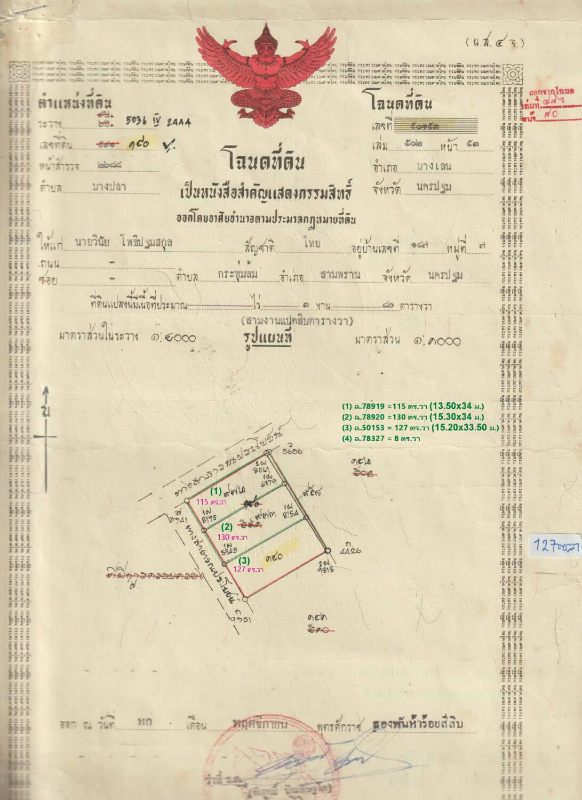 (น.ส.๔ จ.)
ตำแหน่งที่ดิน
ระวาง 5036 IV 2844
เลขที่ดิน ๑๘๐
หน้าสำรวจ ๒๖๔๔
ตำบล บางปลา
โฉนดที่ดิน
เลขที่ ๕๐๑๕๓
เล่ม ๕๐๒ หน้า ๕๓
อำเภอ บางเลน
จังหวัด นครปฐม
โฉนดที่ดิน
เป็นหนังสือสำคัญแสดงกรรมสิทธิ์
ออกโดยอาศัยอำนาจตามประมวลกฎหมายที่ดิน
ให้แก่ นายวินัย โพธิปฐมสกุล สัญชาติ ไทย อยู่บ้านเลขที่ ๑๔๗ หมู่ที่ ๗
ถนน -
ซอย - ตำบล กระทุ่มล้ม อำเภอ สามพราน จังหวัด นครปฐม
ที่ดินแปลงนี้มีเนื้อที่ประมาณ - ไร่ ๓ งาน ๘๐ ตารางวา
(สามงานแปดสิบตารางวา)
มาตราส่วนในระวาง ๑:๔๐๐๐ รูปแผนที่ มาตราส่วน ๑:๑๐๐๐
(1) ฉ.78919 =115 ตร.วา (13.50x34 ม.)
(2) ฉ.78920 =130 ตร.วา (15.30x34 ม.)
(3) ฉ.50153 = 127 ตร.วา (15.20x33.50 ม.)
(4) ฉ.78327 = 8 ตร.วา
น
ทางสาธารณประโยชน์
(1)
115 ตร.วา
(2)
130 ตร.วา
(3)
127 ตร.วา
ทางสาธารณประโยชน์
127 ตรว
ออก ณ วันที่ หก เดือน พฤศจิกายน พุทธศักราช สองพันห้าร้อยสี่สิบ